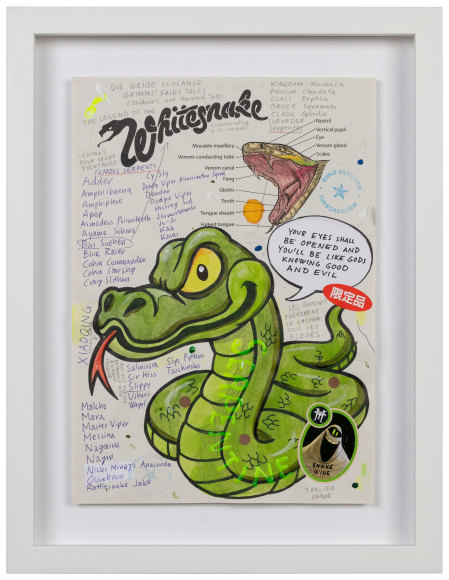 DIE WEIßE SCHLANGE
GRIMMS' FAIRY TALES
Children's and Household Tales
THE LEGEND OF THE
Whitesnake
communicating
with animals
KINGDOM: Animalia
PHYLUM: Chordata
CLASS: Reptilia
ORDER: Squamata
CLADE: Ophidia
SUBORDER:
Serpentes
Nostril
Vertical pupil
Eye
Venom gland
Scales
Movable maxillary
Venom conducting tube
Venom canal
Fang
Glottis
Tooth
Tongue sheath
Forked tongue
CHINA'S
FOUR GREAT
FOLKTALES
FAMOUS SERPENTS
Adder
Amphisbaena
Amphiptere
Apep
Asmodeus Poisonteeth
Ayame Sohma
Bai Suzhen
Blue Racer
Cobra Commander
Cobra Starship
Craig Slithers
Deadly Viper Assassination Squad
Dendar
Dodge Viper
Hissing Sid
Jörmungandr
Ju-Ju
Kaa
Kaaaj
YOUR EYES SHALL
BE OPENED AND
YOU'LL BE LIKE GODS
KNOWING GOOD
AND EVIL
限定品
LES SERPENTS
SE CACHER
SOUS LES
FLEURS.
XIAOQING
Salmissra
Sir Hiss
Slippy
Viper
Slyp Python
Tsuchinoko
Malcho
Mara
Master Viper
Messina
Nagaina
Nagini
Nicki Minaj's Anaconda
Ouroboros
Rattlesnake Jake
SERPENTINE
SNAKE
WINE
TROUSER
SNAKE